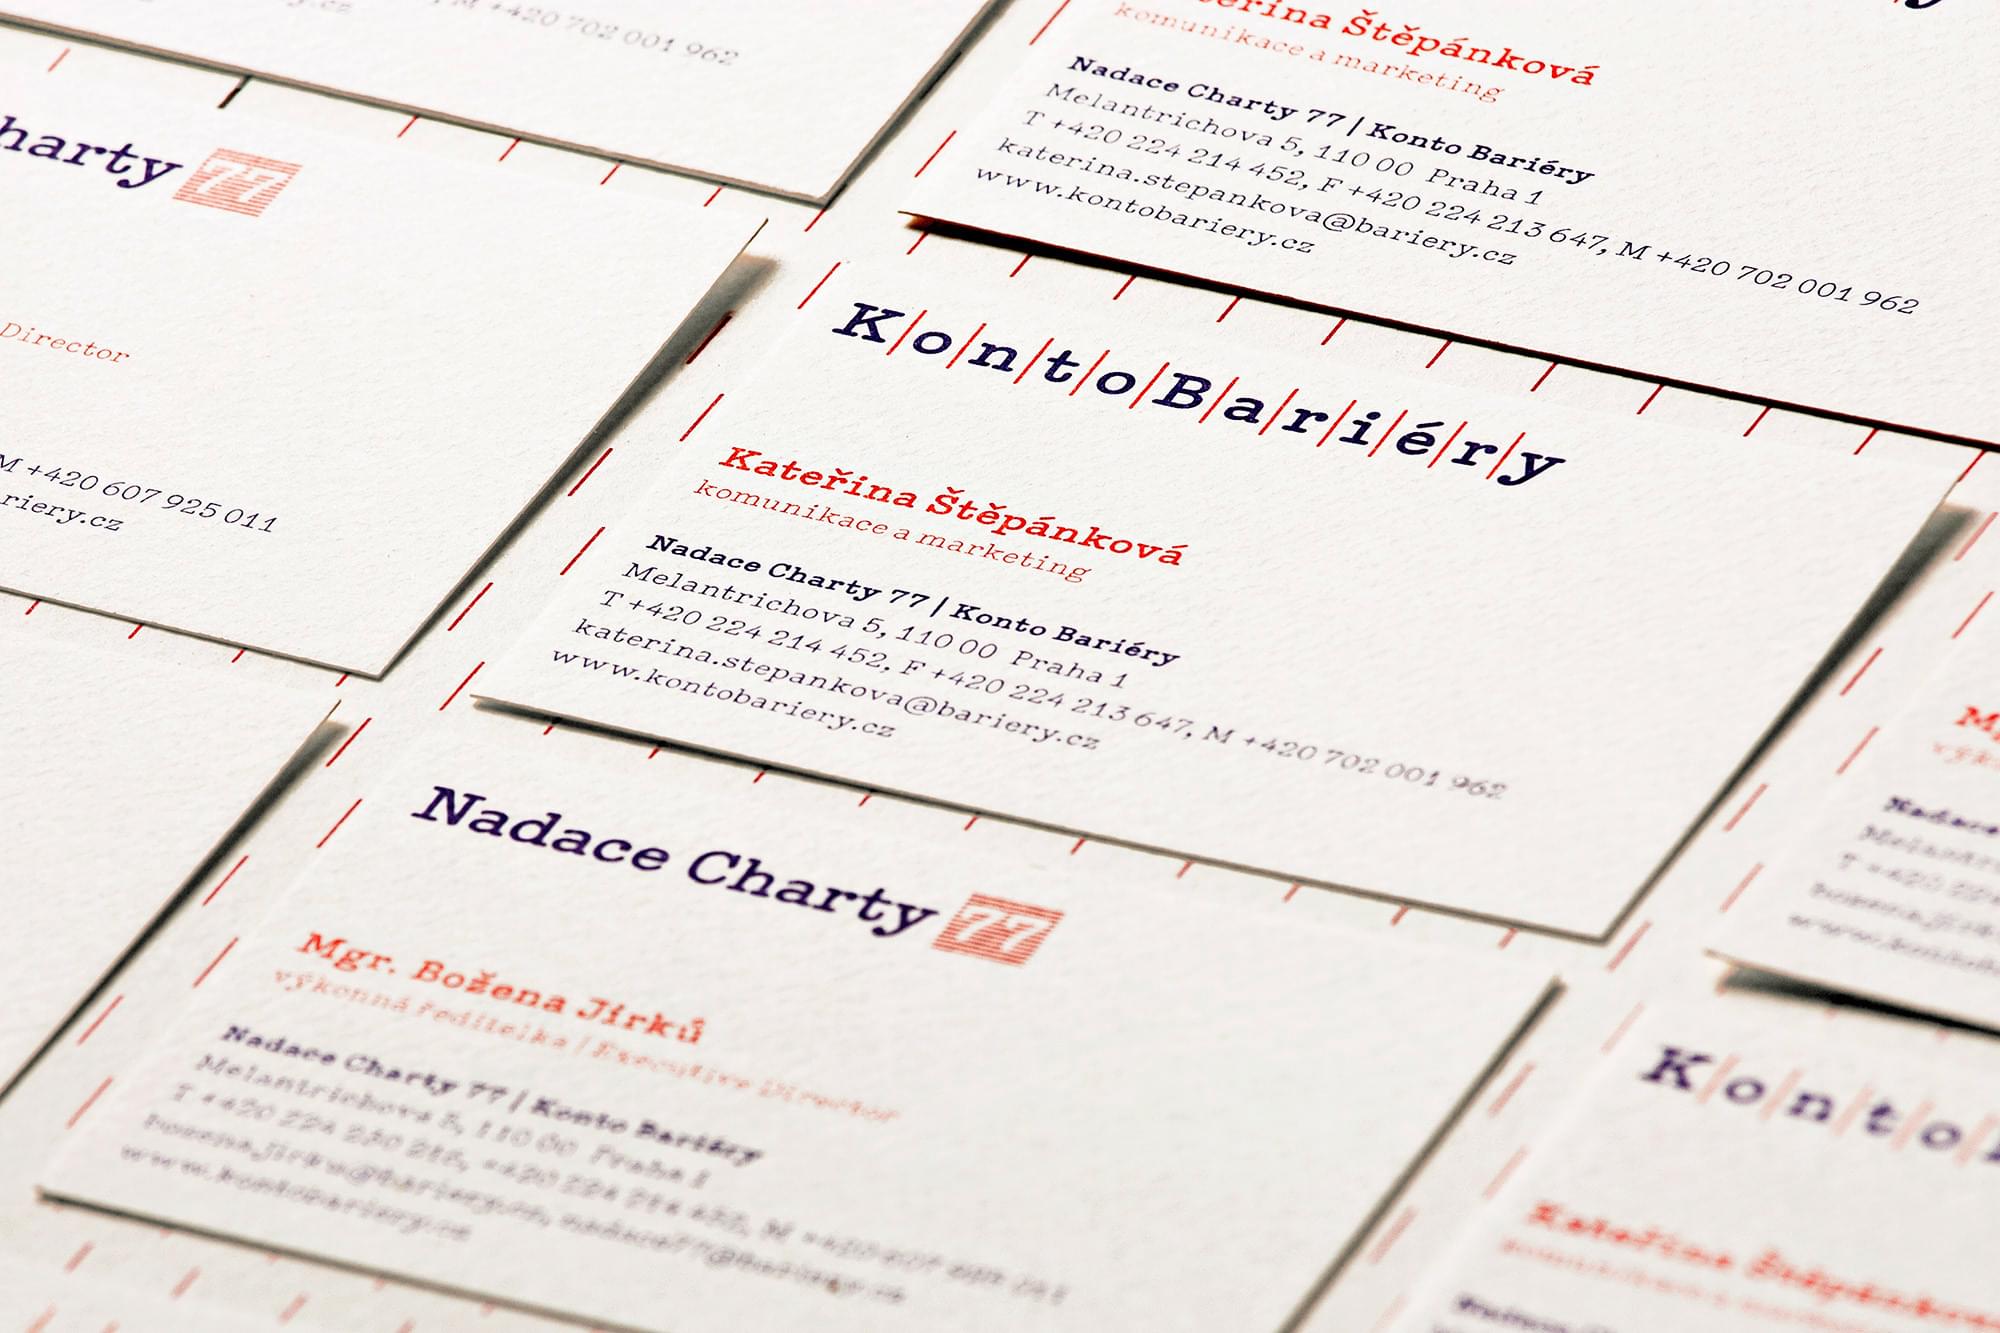 M +420 702 001 962
Kateřina Štěpánková
komunikace a marketing
Nadace Charty 77 | Konto Bariéry
Melantrichova 5, 110 00 Praha 1
T +420 224 214 452, F +420 224 213 647, M +420 702 001 962
katerina.stepankova@bariery.cz
www.kontobariery.cz
Charty 77
Director
M +420 607 925 011
riery.cz
K|o|n|t|o|B|a|r|i|é|r|y
Kateřina Štěpánková
komunikace a marketing
Nadace Charty 77 | Konto Bariéry
Melantrichova 5, 110 00 Praha 1
T +420 224 214 452, F +420 224 213 647, M +420 702 001 962
katerina.stepankova@bariery.cz
www.kontobariery.cz
Nadace Charty 77
Mgr. Božena Jirků
výkonná ředitelka | Executive Director
Nadace Charty 77 | Konto Bariéry
Melantrichova 5, 110 00 Praha 1
T +420 224 230 216, +420 224 214 452, M +420 607 925 011
bozena.jirku@bariery.cz, nadace77@bariery.cz
www.kontobariery.cz
Nadace
Melantri
T +420 224
K|o|n|t|o|
Kateřina Štěpánková